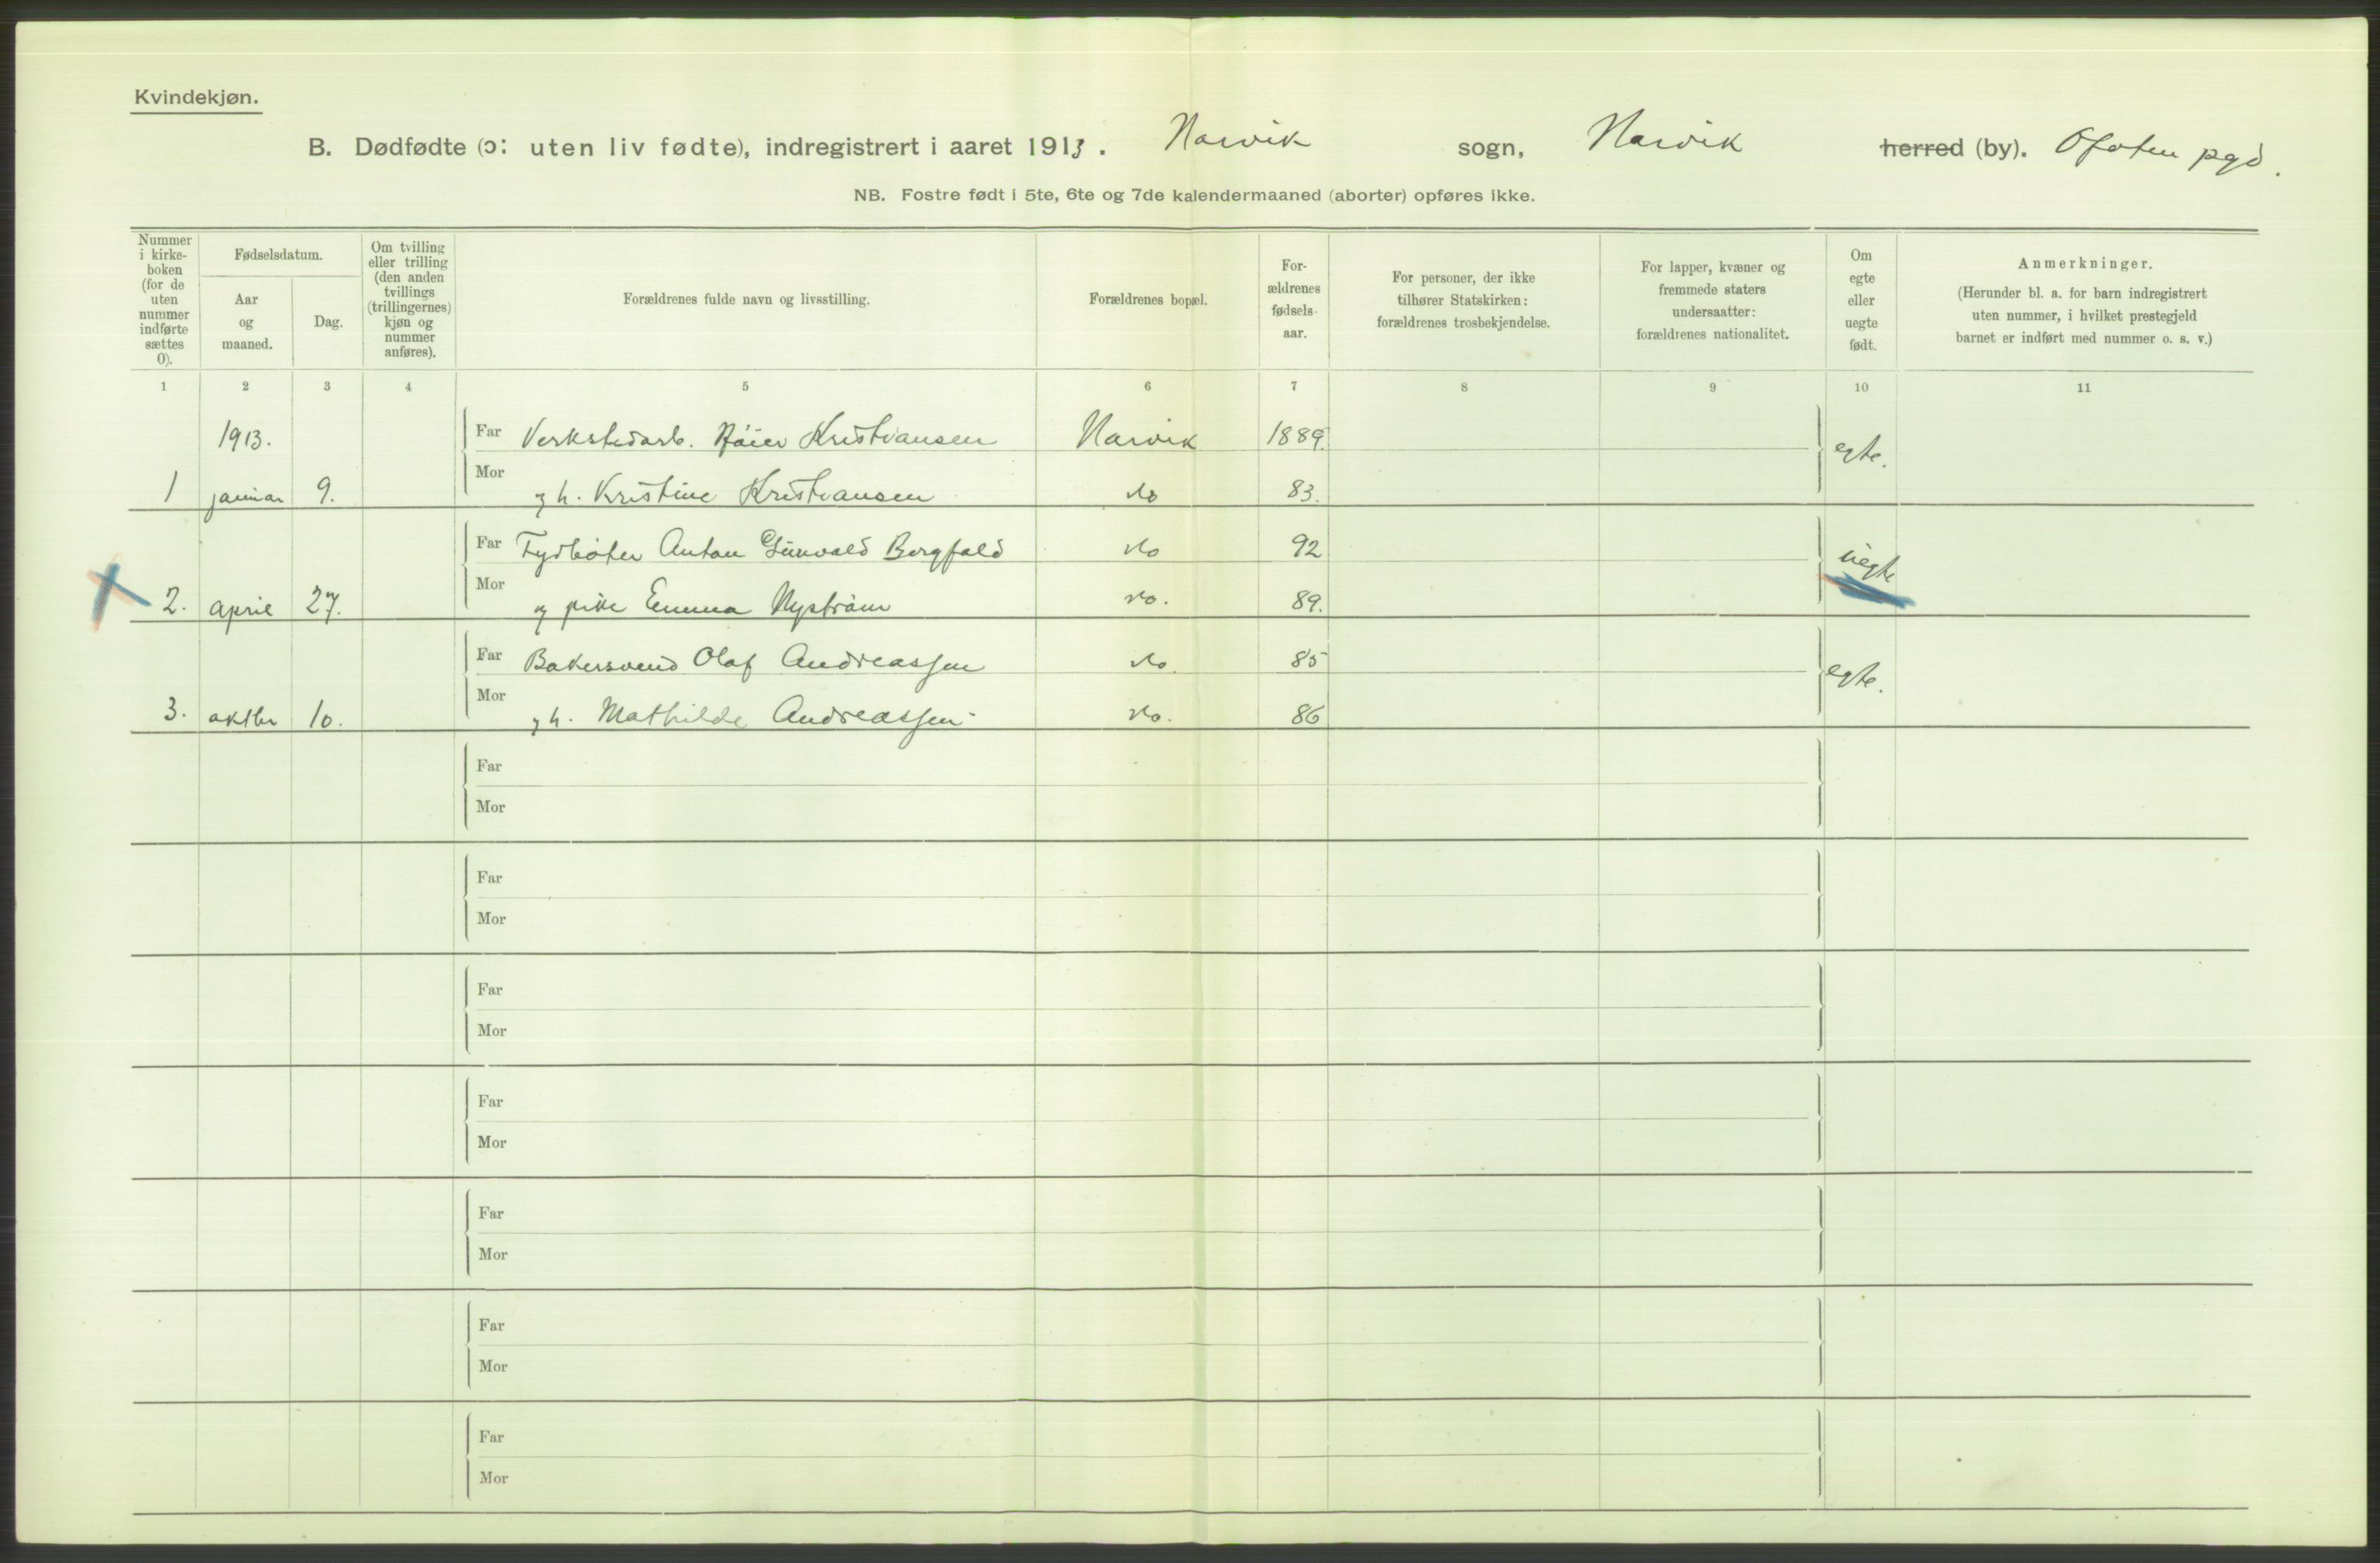 Kvindekjøn.
B. Dødfødte (ɔ: uten liv fødte), indregistrert i aaret 1913. Narvik sogn, Narvik herred (by). Ofoten pgd.
NB. Fostre født i 5te, 6te og 7de kalendermaaned (aborter) opføres ikke.
Nummer i kirke-boken (for de uten nummer indførte sættes 0).
Fødselsdatum.
Aar og maaned.
Dag.
Om tvilling eller trilling (den anden tvillings (trillingernes) kjøn og nummer anføres).
Forældrenes fulde navn og livsstilling.
Forældrenes bopæl.
For-ældrenes fødsels-aar.
For personer, der ikke tilhører Statskirken: forældrenes trosbekjendelse.
For lapper, kvæner og fremmede staters undersaatter: forældrenes nationalitet.
Om egte eller uegte født.
Anmerkninger. (Herunder bl. a. for barn indregistrert uten nummer, i hvilket prestegjeld barnet er indført med nummer o. s. v.)
1 2 3 4 5 6 7 8 9 10 11
1913. Far Verkstedarb. Kristiansen Narvik 1889. egte.
1 januar 9. Mor og h. Kristine Kristiansen do 83.
Far Anton Gunvald Bergfald do 92 uegte
2. april 27. Mor og pike Emma Nyström do. 89.
Far Bakersvend Olaf Andreassen do. 85 egte.
3. oktbr 10. Mor og h. Mathilde Andreassen do. 86
Far
Mor
Far
Mor
Far
Mor
Far
Mor
Far
Mor
Far
Mor
Far
Mor